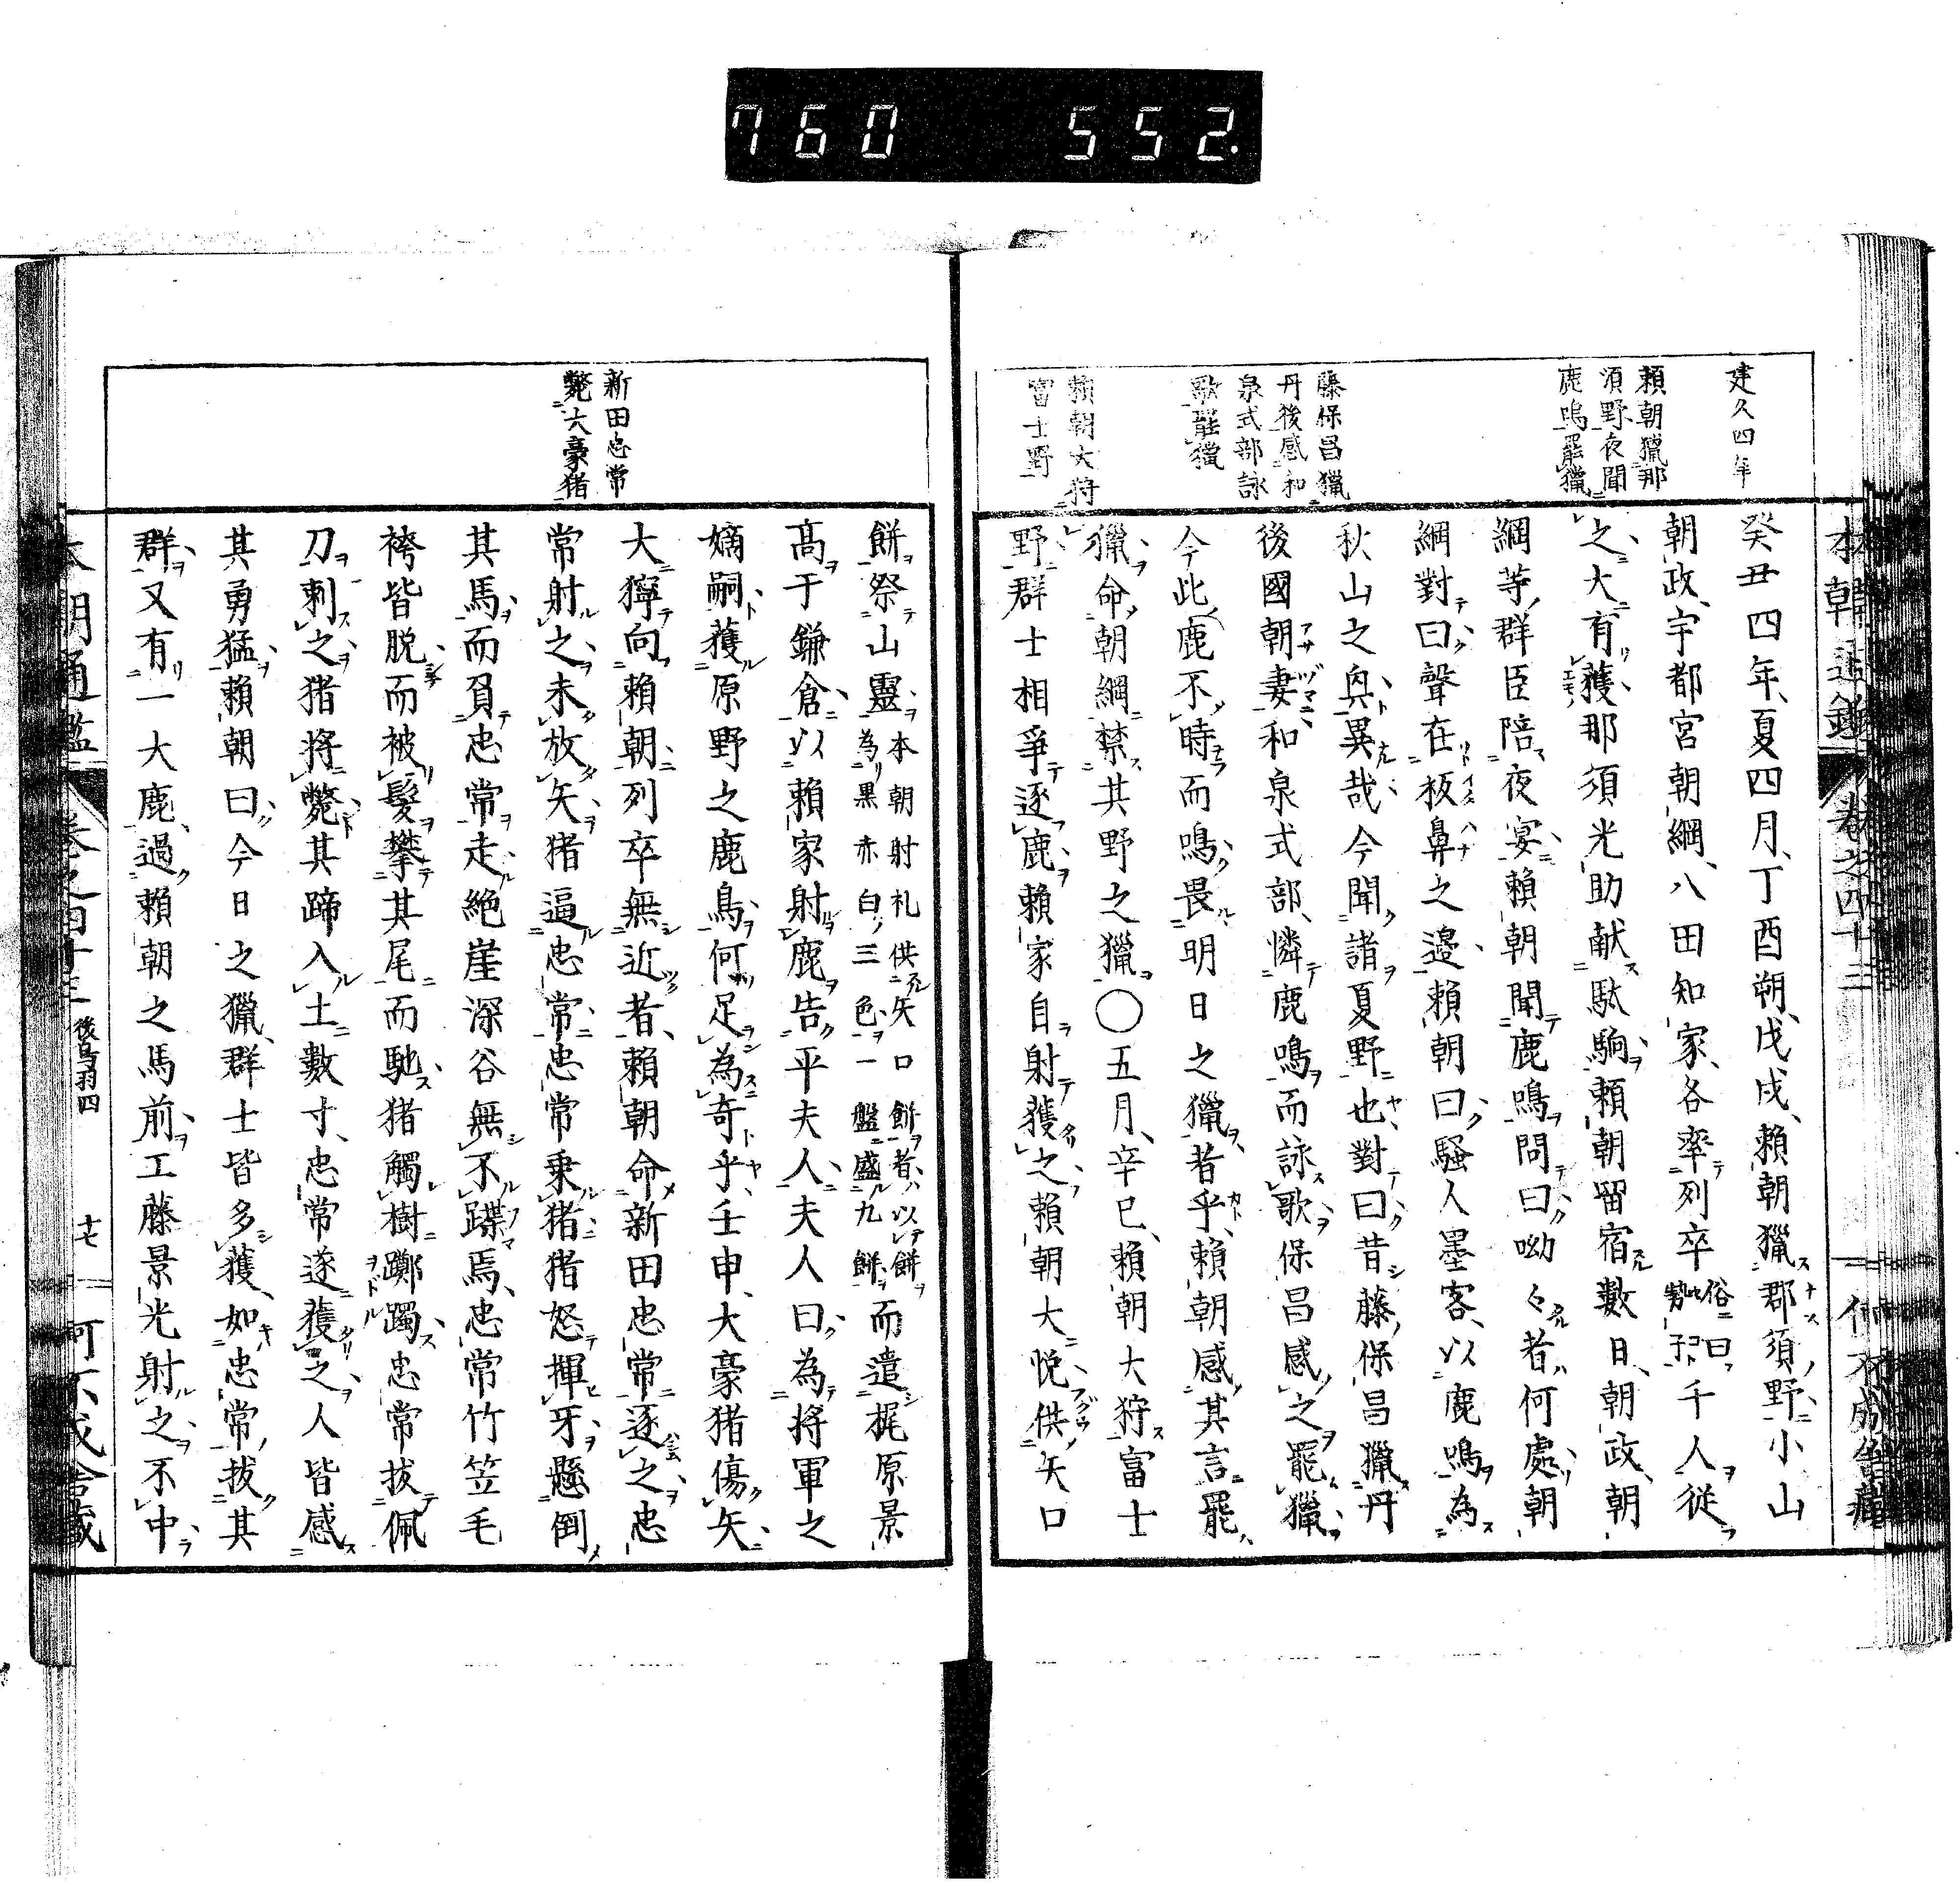 760 552
建久四年
頼朝獵那
須野夜聞
鹿鳴罷獵
藤保昌獵
丹後感和
泉式部詠
歌罷獵
頼朝大狩
富士野
癸丑四年、夏四月、丁酉朔、戊戌、賴朝獵郡須野、小山
朝政、宇都宮朝綱、八田知家、各率列卒俗曰勢子千人從
之、大有獲、那須光助献駄駒、賴朝留宿數日、朝政、朝
綱等、群臣陪夜宴、賴朝聞鹿鳴、問曰、呦々者何處、朝
綱對曰、聲在板鼻之邊、賴朝曰、騷人墨客、以鹿鳴為
秋山之奥異哉、今聞諸夏野也、對曰、昔藤保昌獵丹
後國朝妻、和泉式部、憐鹿鳴而詠歌、保昌感之罷獵、
今此鹿不時而鳴、畏明日之獵者乎、賴朝感其言罷
獵、命朝綱禁其野之獵○五月、辛巳、賴朝大狩富士
野、群士相爭逐鹿、賴家自射獲之、賴朝大悅、供矢口
餅祭山靈本朝射礼供矢口餅者、以餅為黒赤白三色一盤盛九餅、而遣梶原景
高于鎌倉、以賴家射鹿告平夫人、夫人曰、為將軍之
嫡嗣、獲原野之鹿鳥、何足為奇乎、壬申、大豪猪傷矢
大獰向賴朝、列卒無近者、賴朝命新田忠常逐之、忠
常射之、未放矢、猪逼忠常、忠常乗猪、猪怒揮牙、懸倒
其馬、而負忠常走、絶崖深谷無不蹀焉、忠常竹笠毛
袴皆脱而被髪、攀其尾而馳、猪觸樹躑躅、忠常拔佩
刀刺之、猪將斃、其蹄入土數寸、忠常遂獲之、人皆感
其勇猛、賴朝曰、今日之獵、群士皆多獲、如忠常、拔其
群、又有一大鹿、過賴朝之馬前、工藤景光射之、不中
新田忠常
斃大豪猪
本朝通鑑 卷之四十三 後鳥羽四 十七